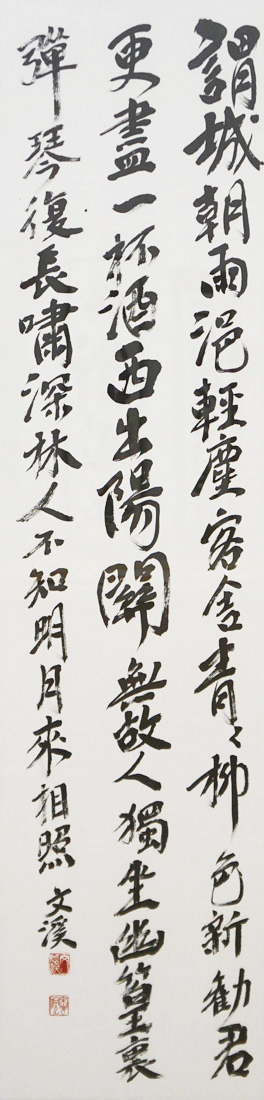 謂城朝雨浥輕塵客舍青々柳色新勸君
更盡一杯酒西出陽關無故人獨坐幽篁裏
彈琴復長嘯深林人不知明月來相照
文溪